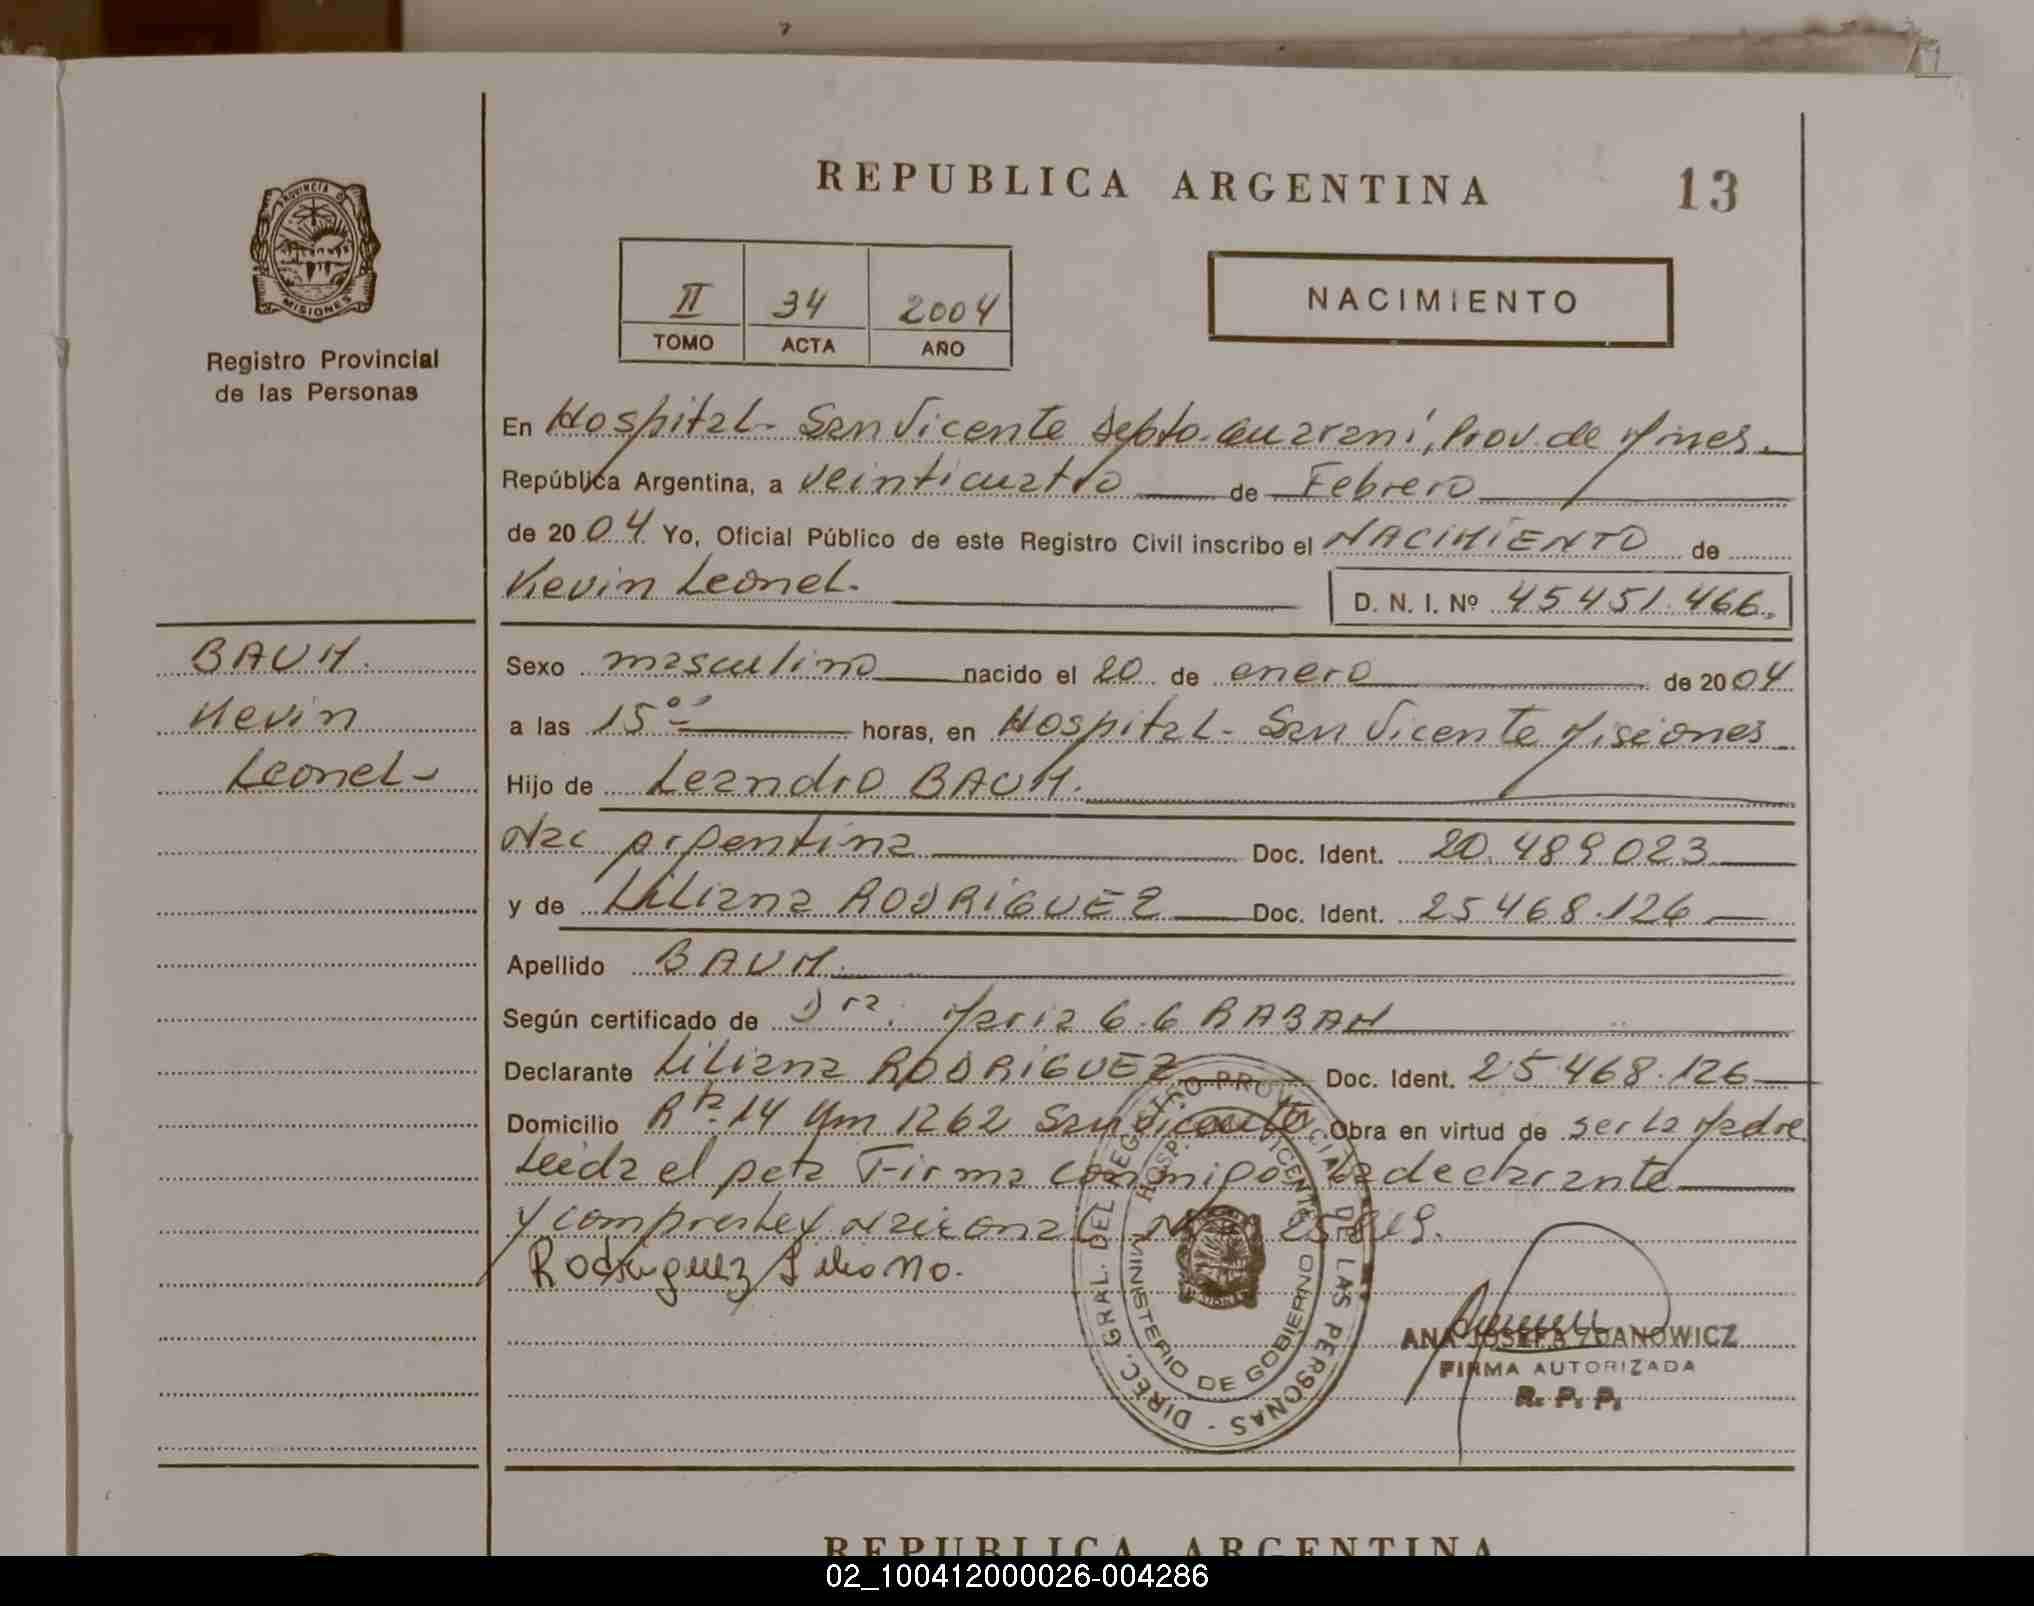 REPUBLICA ARGENTINA 13
PROVINCIA DE MISIONES
Registro Provincial
de las Personas
II 34 2004
TOMO ACTA AÑO
NACIMIENTO
En Hospital - San Vicente Depto. Guaraní, Prov. de Mnes.
República Argentina, a veinticuatro de Febrero
de 2004 Yo, Oficial Público de este Registro Civil inscribo el NACIMIENTO de
Kevin Leonel.
D. N. I. Nº 45451.466.
BAUM.
Kevin
Leonel
Sexo masculino nacido el 20 de enero de 2004
a las 15 horas, en Hospital - San Vicente Misiones
Hijo de Leandro BAUM.
Nac argentina Doc. Ident. 20.489.023
y de Liliana RODRIGUEZ Doc. Ident. 25468.126
Apellido BAUM.
Según certificado de Dra. Maria G. G RABAN
Declarante Liliana RODRIGUEZ Doc. Ident. 25468.126
Domicilio Rta 14 Km 1262 San Vicente Obra en virtud de ser la Madre
Leida el acta Firma conmigo la declarante
y
Rodriguez Liliana.
DIREC. GRAL. DEL REGISTRO PROVINCIAL DE LAS PERSONAS -
HOSP. VICENTE
MINISTERIO DE GOBIERNO
ANA JOSEFA ZDANOWICZ
FIRMA AUTORIZADA
R. P. P.
REPUBLICA ARGENTINA
02_100412000026-004286